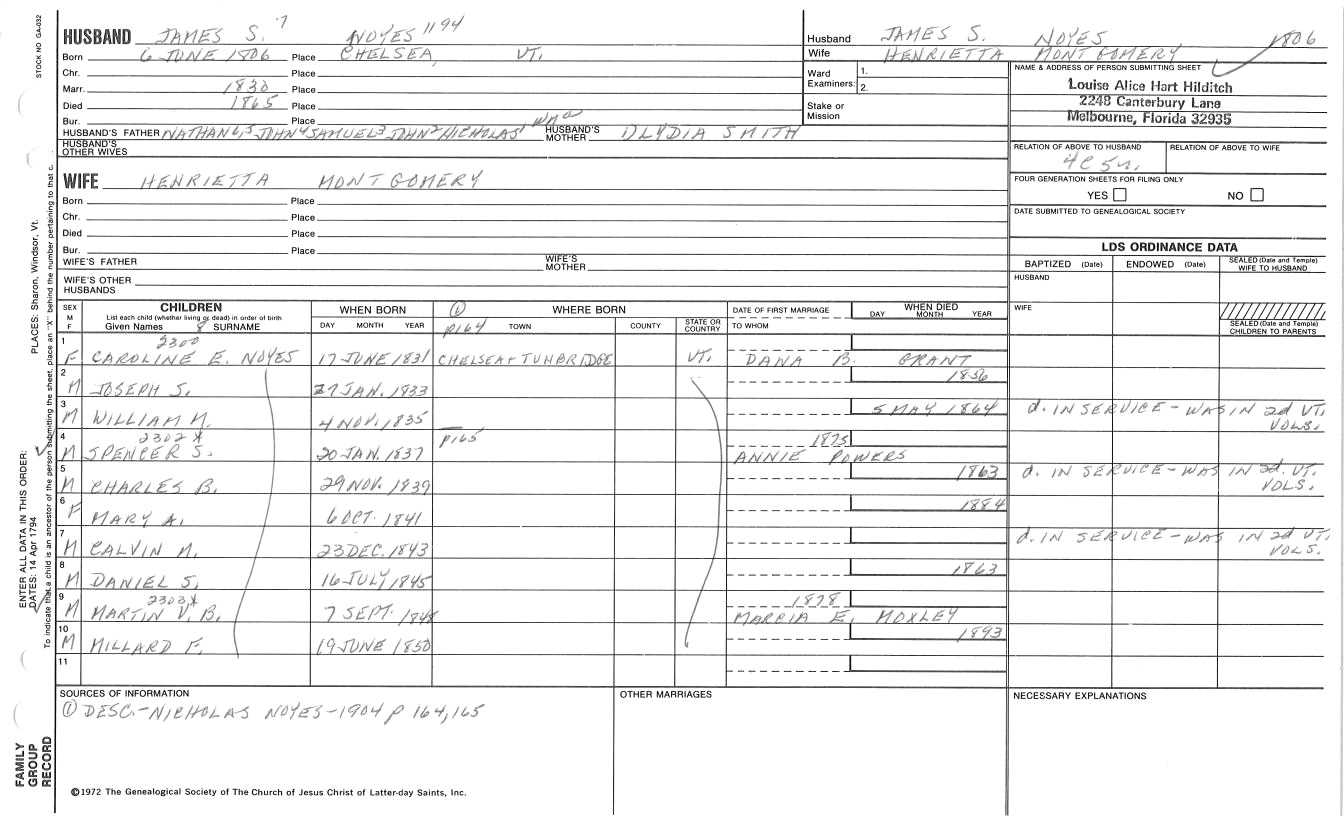 STOCK NO GA-032
HUSBAND JAMES S. 7 NOYES 1194
Born 6 JUNE 1806 Place CHELSEA, VT.
Chr. Place
Marr. 1830 Place
Died 1865 Place
Bur. Place
HUSBAND'S FATHER NATHAN 6,5 JOHN 4 SAMUEL 3 JOHN 2 NICHOLAS 1 Wm HUSBAND'S MOTHER LYDIA SMITH
HUSBAND'S OTHER WIVES
WIFE HENRIETTA MONTGOMERY
Born Place
Chr. Place
Died Place
Bur. Place
WIFE'S FATHER WIFE'S MOTHER
WIFE'S OTHER HUSBANDS
Husband JAMES S. NOYES 1806
Wife HENRIETTA MONTGOMERY
Ward Examiners: 1. 2.
Stake or Mission
NAME & ADDRESS OF PERSON SUBMITTING SHEET
Louise Alice Hart Hilditch
2248 Canterbury Lane
Melbourne, Florida 32935
RELATION OF ABOVE TO HUSBAND RELATION OF ABOVE TO WIFE
4C 5r.
FOUR GENERATION SHEETS FOR FILING ONLY
YES NO
DATE SUBMITTED TO GENEALOGICAL SOCIETY
LDS ORDINANCE DATA
BAPTIZED (Date) ENDOWED (Date) SEALED (Date and Temple) WIFE TO HUSBAND
HUSBAND
WIFE
SEALED (Date and Temple) CHILDREN TO PARENTS
SEX M F
CHILDREN
List each child (whether living or dead) in order of birth
Given Names 8 SURNAME
WHEN BORN
DAY MONTH YEAR
① WHERE BORN
p164 TOWN COUNTY STATE OR COUNTRY
DATE OF FIRST MARRIAGE
TO WHOM
WHEN DIED
DAY MONTH YEAR
1 2300
F CAROLINE E. NOYES 17 JUNE 1831 CHELSEA & TUNBRIDGE VT. DANA B. GRANT
2 1856
M JOSEPH S. 27 JAN. 1833
3 5 MAY 1864 d. IN SERVICE - WAS IN 2d VT. VOLS.
M WILLIAM M. 4 NOV. 1835
4 2302 X p165 1875
M SPENCER S. 20 JAN. 1837 ANNIE POWERS
5 1863 d. IN SERVICE - WAS IN 2d. VT. VOLS.
M CHARLES B. 29 NOV. 1839
6 1884
F MARY A. 6 OCT. 1841
7 d. IN SERVICE - WAS IN 2d VT. VOLS.
M CALVIN M. 23 DEC. 1843
8 1863
M DANIEL S. 16 JULY 1845
9 2303 X 1878
M MARTIN V. B. 7 SEPT. 1848 MARCIA E. MOXLEY
10 1893
M MILLARD F. 19 JUNE 1850
11
SOURCES OF INFORMATION
① DESC. - NICHOLAS NOYES - 1904 p 164, 165
OTHER MARRIAGES
NECESSARY EXPLANATIONS
©1972 The Genealogical Society of The Church of Jesus Christ of Latter-day Saints, Inc.
FAMILY GROUP RECORD
ENTER ALL DATA IN THIS ORDER:
DATES: 14 Apr 1794
PLACES: Sharon, Windsor, Vt.
To indicate that a child is an ancestor of the person submitting the sheet, place an "X" behind the number pertaining to that c